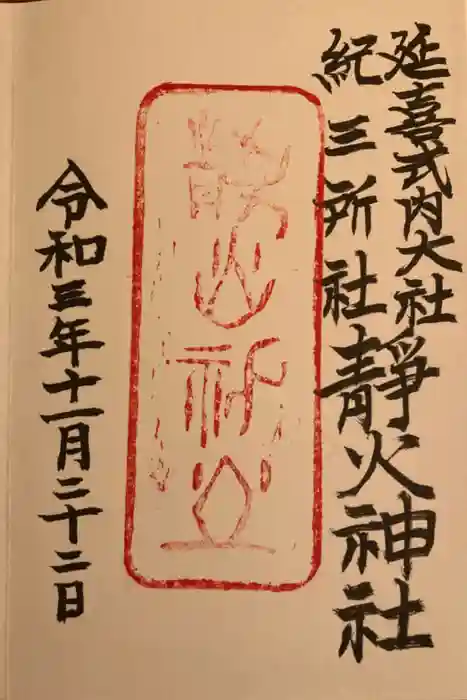 延喜式内大社
紀三所社
靜火神社
令和三年十一月二十二日